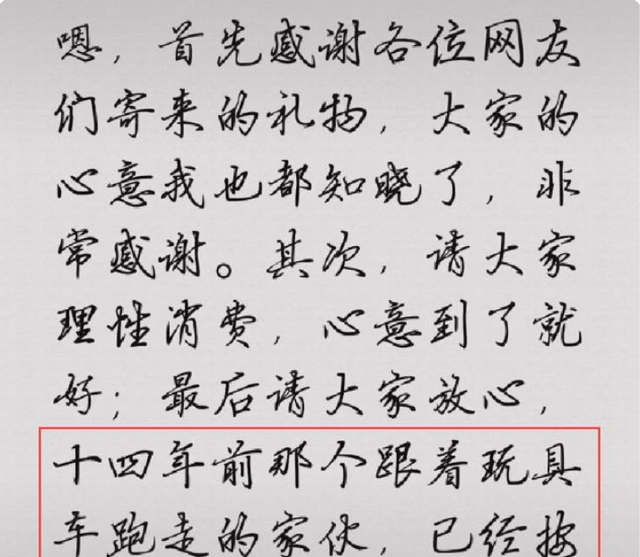 嗯，首先感谢各位网友
们寄来的礼物，大家的
心意我也都知晓了，非
常感谢。其次，请大家
理性消费，心意到了就
好；最后请大家放心，
十四年前那个跟着玩具
车跑走的家伙，已经按